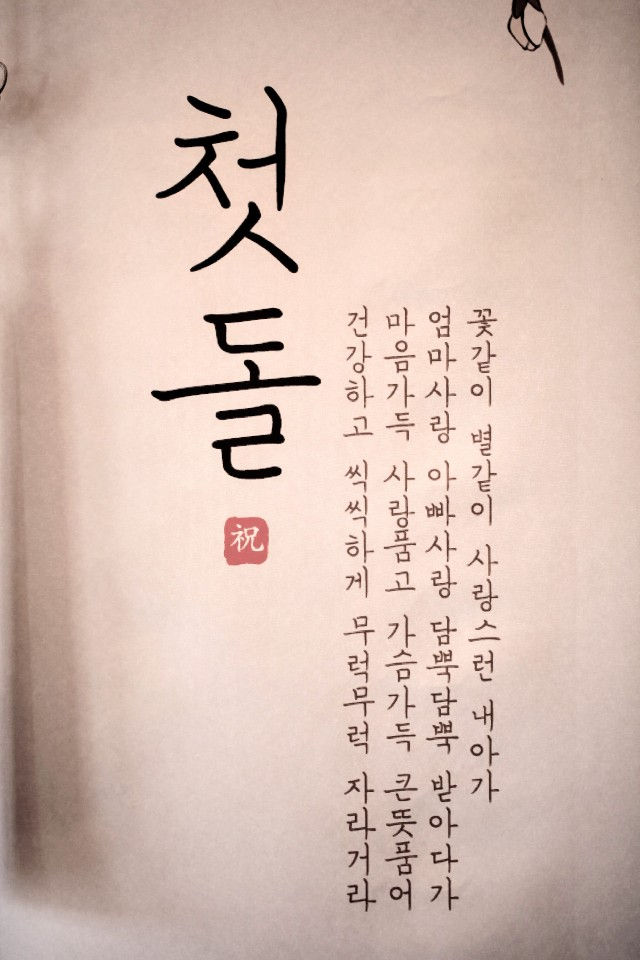 꽃같이 별같이 사랑스런 내아가
엄마사랑 아빠사랑 담뿍담뿍 받아다가
마음가득 사랑품고 가슴가득 큰뜻품어
건강하고 씩씩하게 무럭무럭 자라거라
첫돌
祝